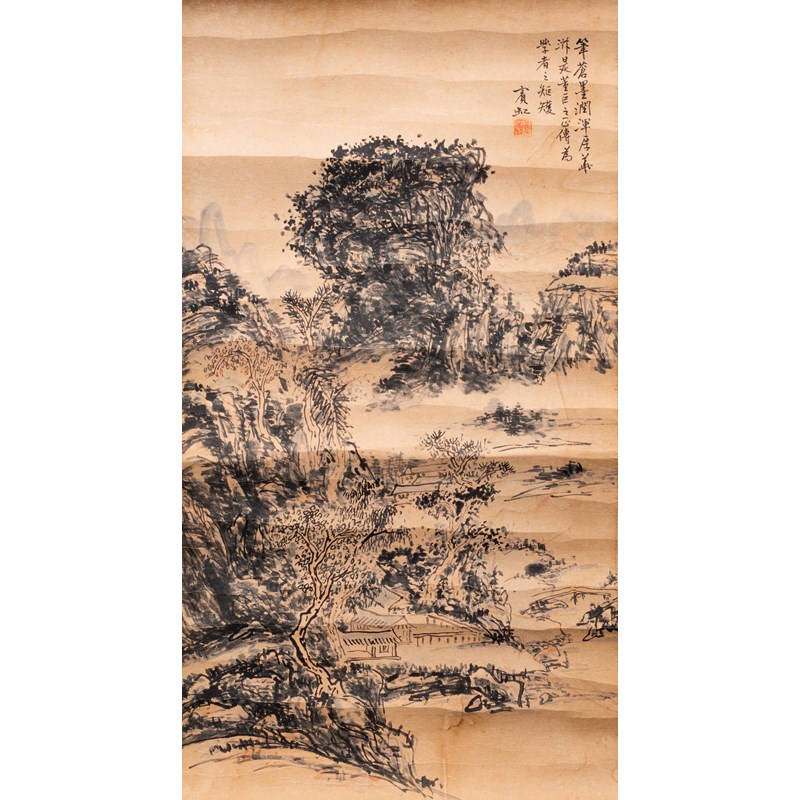 筆蒼墨潤渾厚華
滋是董巨之正傳為
學者之矩矱
賓虹